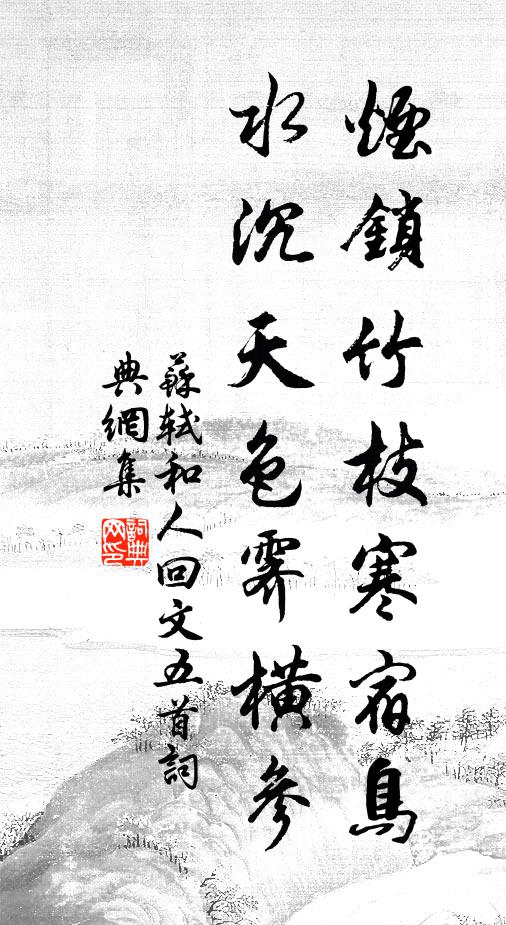 煙鎖竹枝寒宿鳥
水沉天色霽橫參
蘇軾和人回文五首詞
典網集
詞典
网印